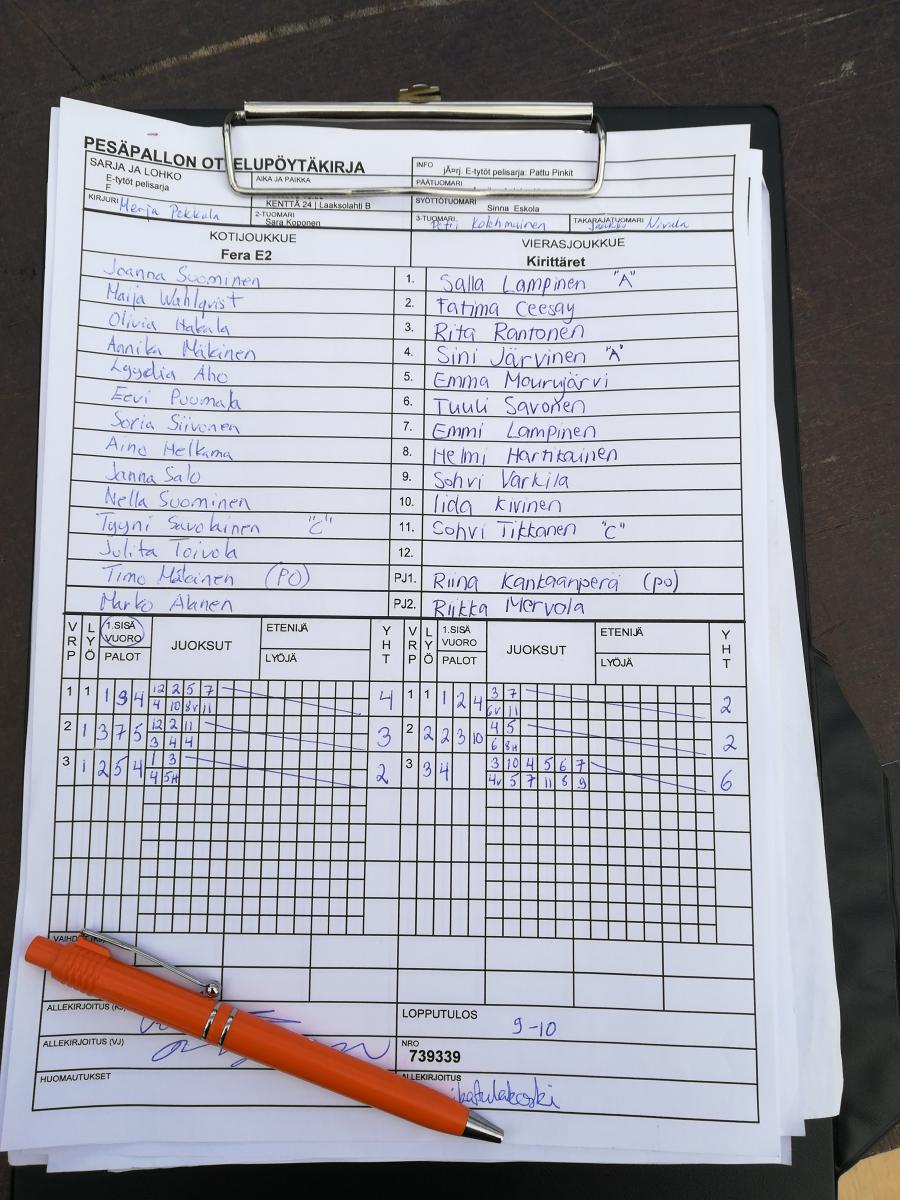 PESÄPALLON OTTELUPÖYTÄKIRJA
SARJA JA LOHKO
E-tytöt pelisarja
F
AIKA JA PAIKKA
KENTTÄ 24 | Laaksolahti B
INFO
jÃ¤rj. E-tytöt pelisarja: Pattu Pinkit
PÄÄTUOMARI
SYÖTTÖTUOMARI
Sinna Eskola
KIRJURI Merja Pekkala
2-TUOMARI
Sara Koponen
3-TUOMARI Petri Kolehmainen
TAKARAJATUOMARI Nivala
KOTIJOUKKUE
Fera E2
VIERASJOUKKUE
Kirittäret
Joanna Suominen 1. Salla Lampinen "A"
Maija Wahlqvist 2. Fatima Ceesay
Olivia Hakala 3. Rita Rantonen
Annika Mäkinen 4. Sini Järvinen "A"
Lyydia Aho 5. Emma Mourujärvi
Eevi Puumala 6. Tuuli Savonen
Soria Siivonen 7. Emmi Lampinen
Aino Helkama 8. Helmi Hartikainen
Janna Salo 9. Sohvi Varkila
Nella Suominen 10. Iida Kivinen
Tyyni Savolainen "C" 11. Sohvi Tikkanen "C"
Julita Toivola 12.
Timo Mäkinen (PO) PJ1. Riina Kankaanperä (po)
Marko Alanen PJ2. Riikka Mervola
VRP LYÖ 1.SISÄ VUORO PALOT JUOKSUT ETENIJÄ LYÖJÄ YHT VRP LYÖ 1.SISÄ VUORO PALOT JUOKSUT ETENIJÄ LYÖJÄ YHT
1 1 1 9 4 12 2 5 7 4 1 1 1 2 4 3 7 2
4 10 8v 11 6v 11
2 1 3 7 5 12 2 11 3 2 2 2 3 10 4 5 2
3 4 4 6 8H
3 1 2 5 4 1 3 2 3 3 4 3 10 4 5 6 7 6
4 5H 4v 5 7 11 8 9
ALLEKIRJOITUS (KJ)
LOPPUTULOS 9-10
ALLEKIRJOITUS (VJ)
NRO
739339
HUOMAUTUKSET
ALLEKIRJOITUS